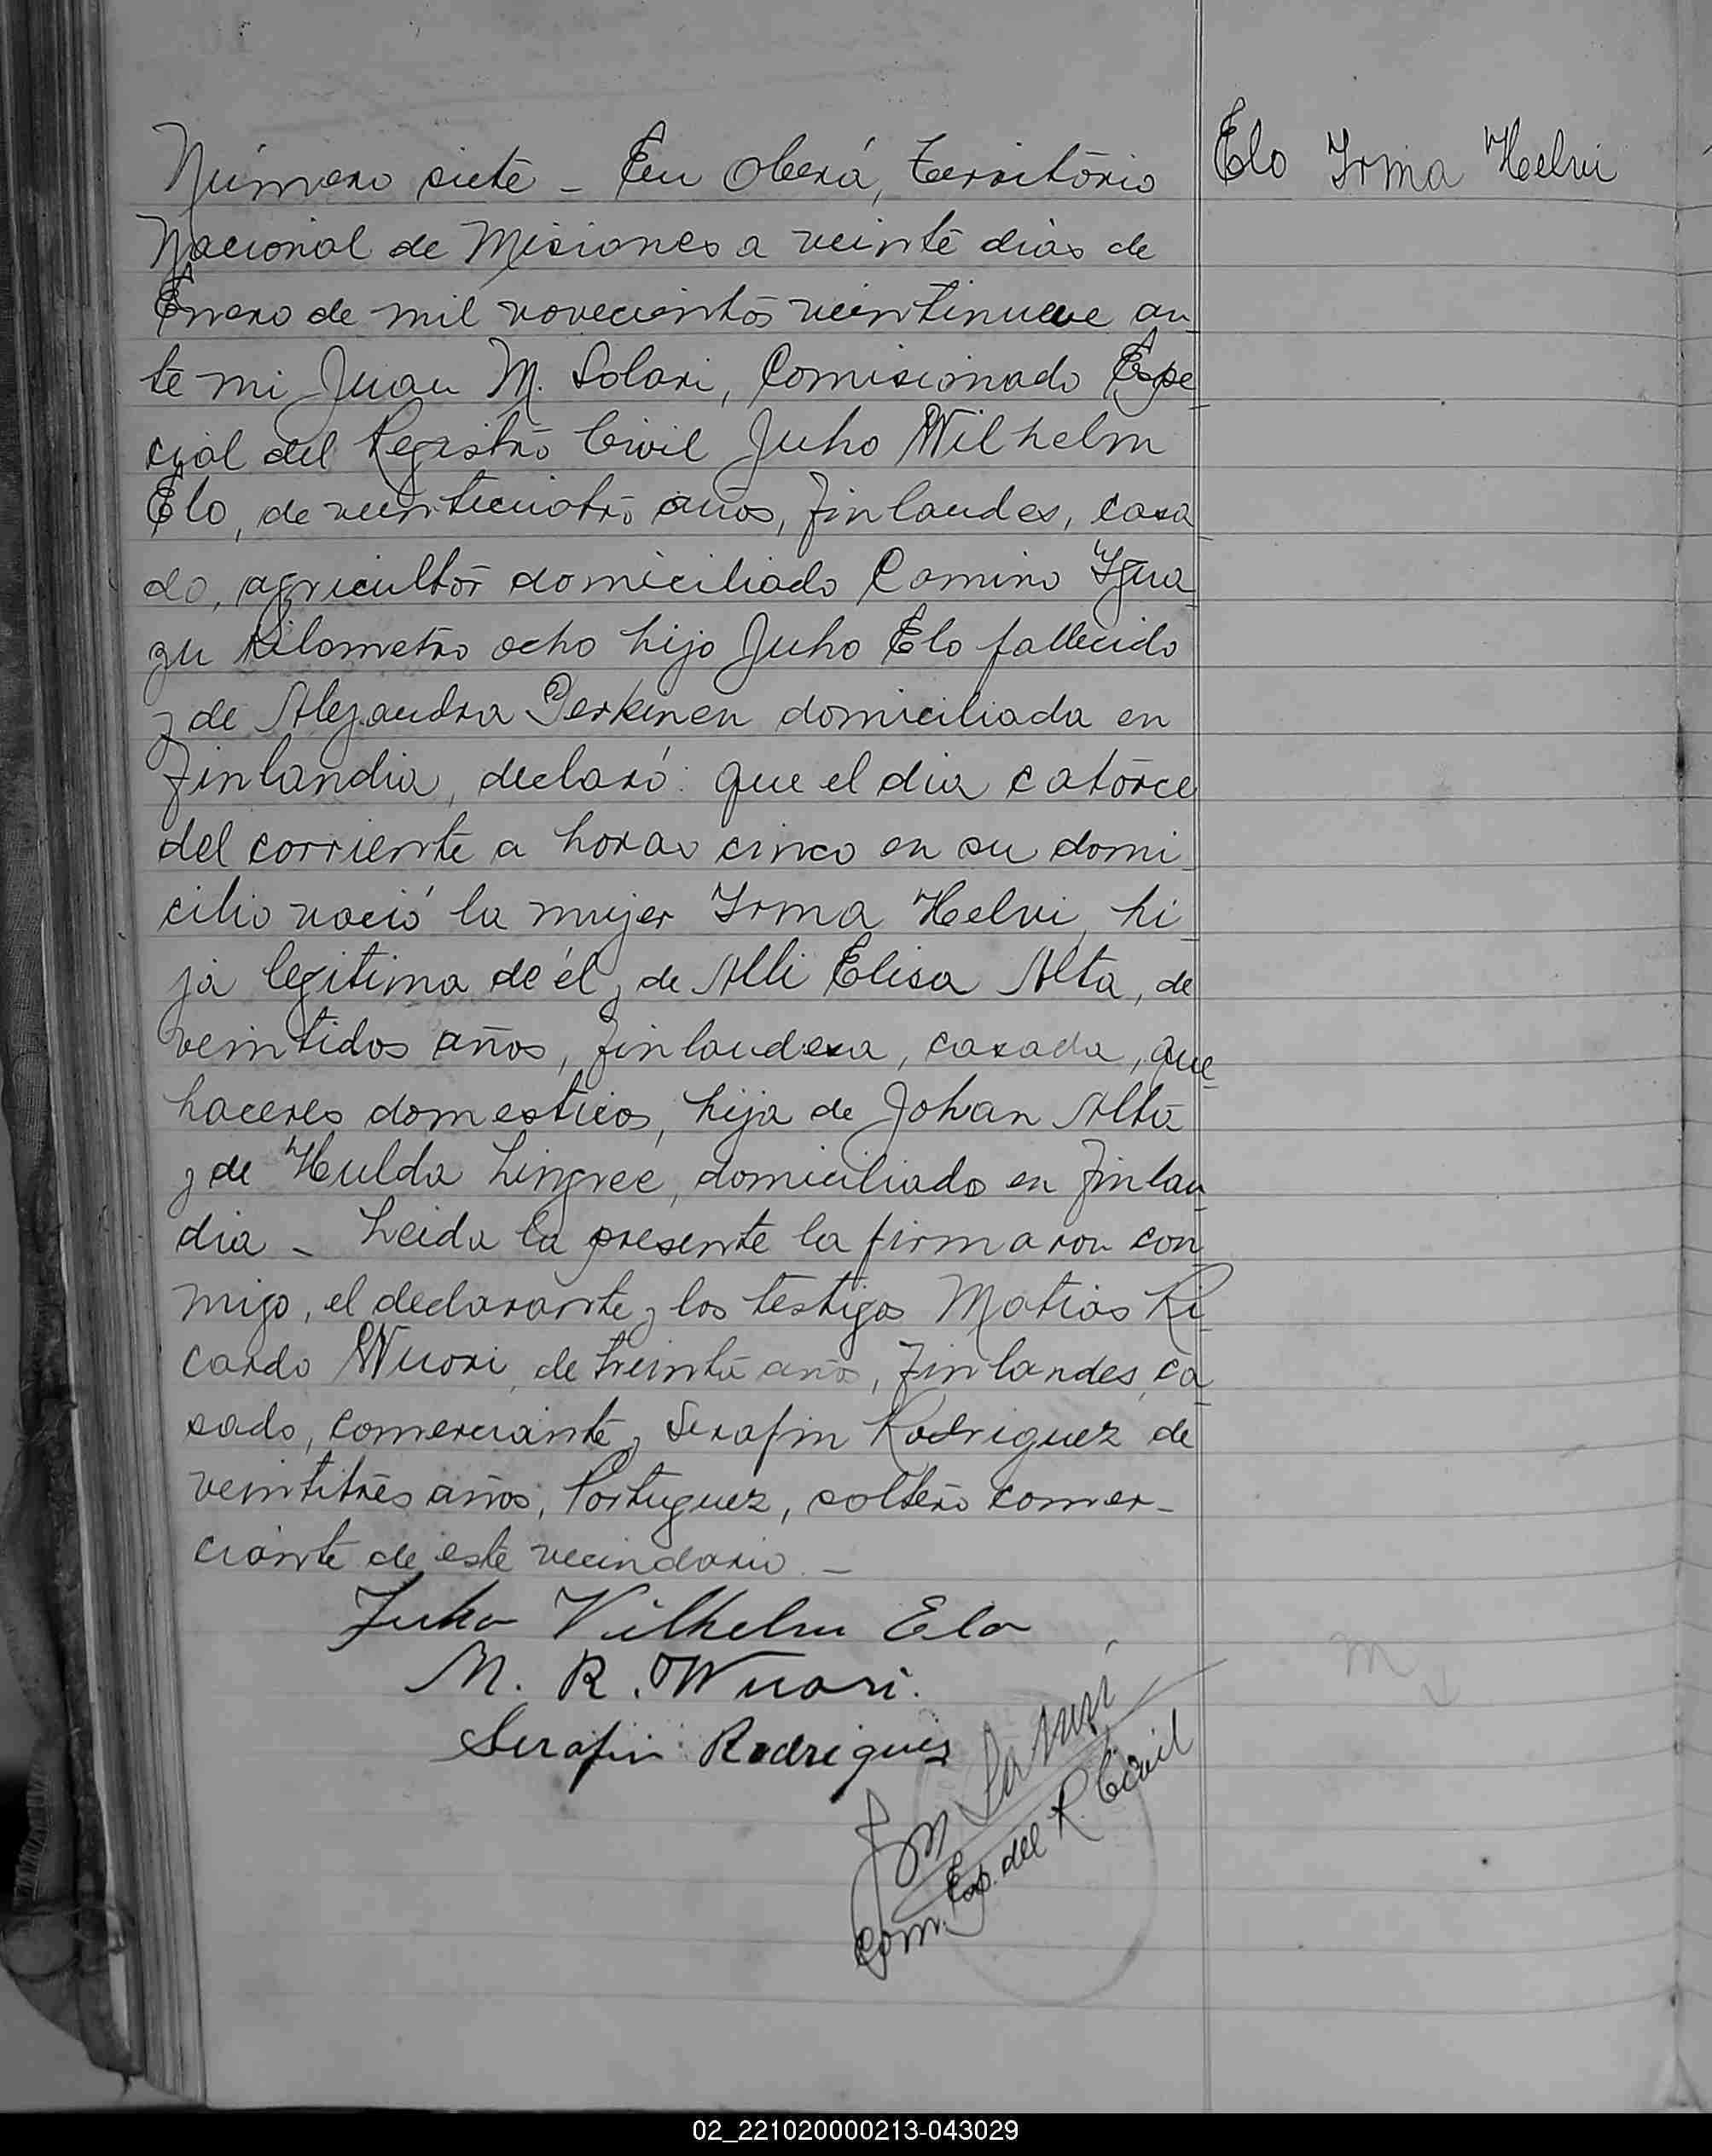 Número siete - En Oberá, Territorio
Elo Irma Helvi
Nacional de Misiones a veinte dias de
Enero de mil novecientos veintinueve an-
te mi Juan M. Solari, Comisionado Espe-
cial del Registro Civil Juho Wilhelm
Elo, de veinticuatro años, finlandes, casa-
do, agricultor domiciliado Camino Igua-
zu Kilometro ocho hijo Juho Elo fallecido
y de Alejandra Perkinen domiciliada en
Finlandia, declaró: que el dia catorce
del corriente a horas cinco en su domi-
cilio nació la mujer Irma Helvi, hi-
ja legitima de él y de Alli Elisa Alta, de
veintidos años, finlandesa, casada, que-
haceres domesticos, hija de Johan Alta
y de Hulda Lingree, domiciliado en Finlan-
dia - Leida la presente la firmaron con-
migo, el declarante y los testigos Matias Ri-
cardo Wuori, de treinta años, finlandes, ca-
sado, comerciante y Serafin Rodriguez de
veintitrés años, Portuguez, soltero comer-
ciante de este vecindario. -
Juho Vilhelm Elo
M. R. Wuori.
Serafin Rodrigues
Com. Esp. del R. Civil
02_221020000213-043029